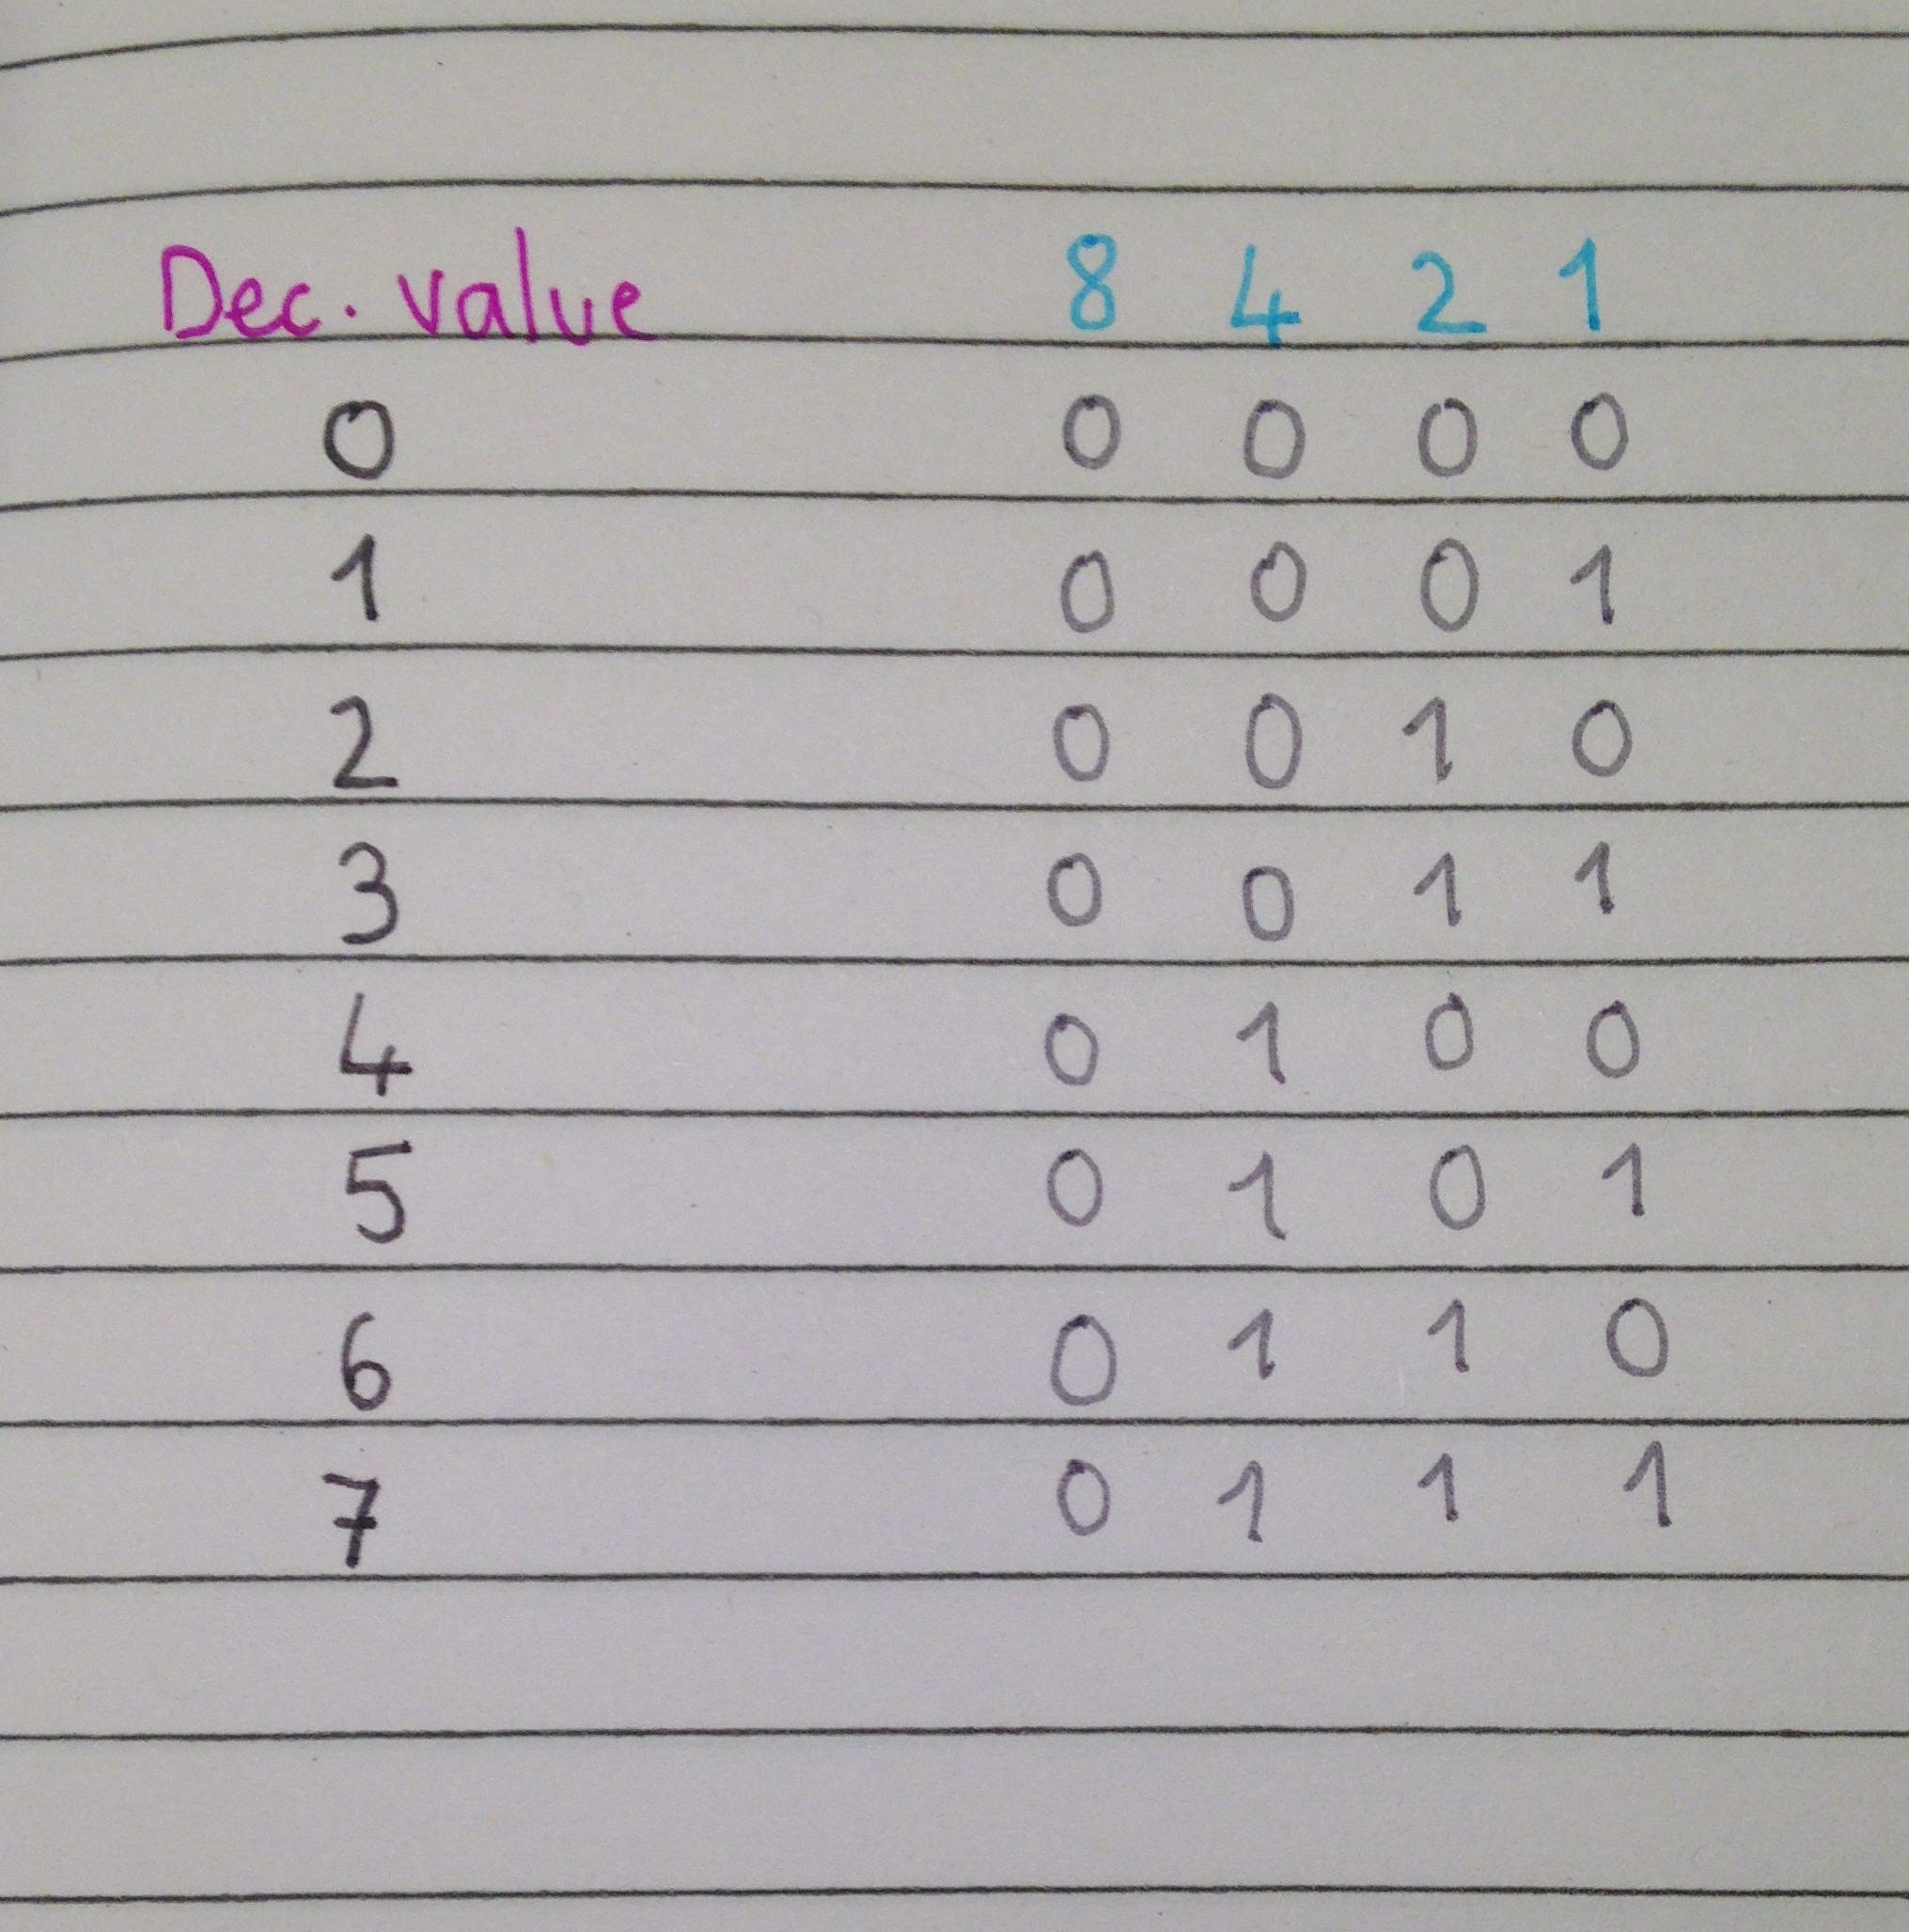 Dec. value 8 4 2 1
0 0 0 0 0
1 0 0 0 1
2 0 0 1 0
3 0 0 1 1
4 0 1 0 0
5 0 1 0 1
6 0 1 1 0
7 0 1 1 1